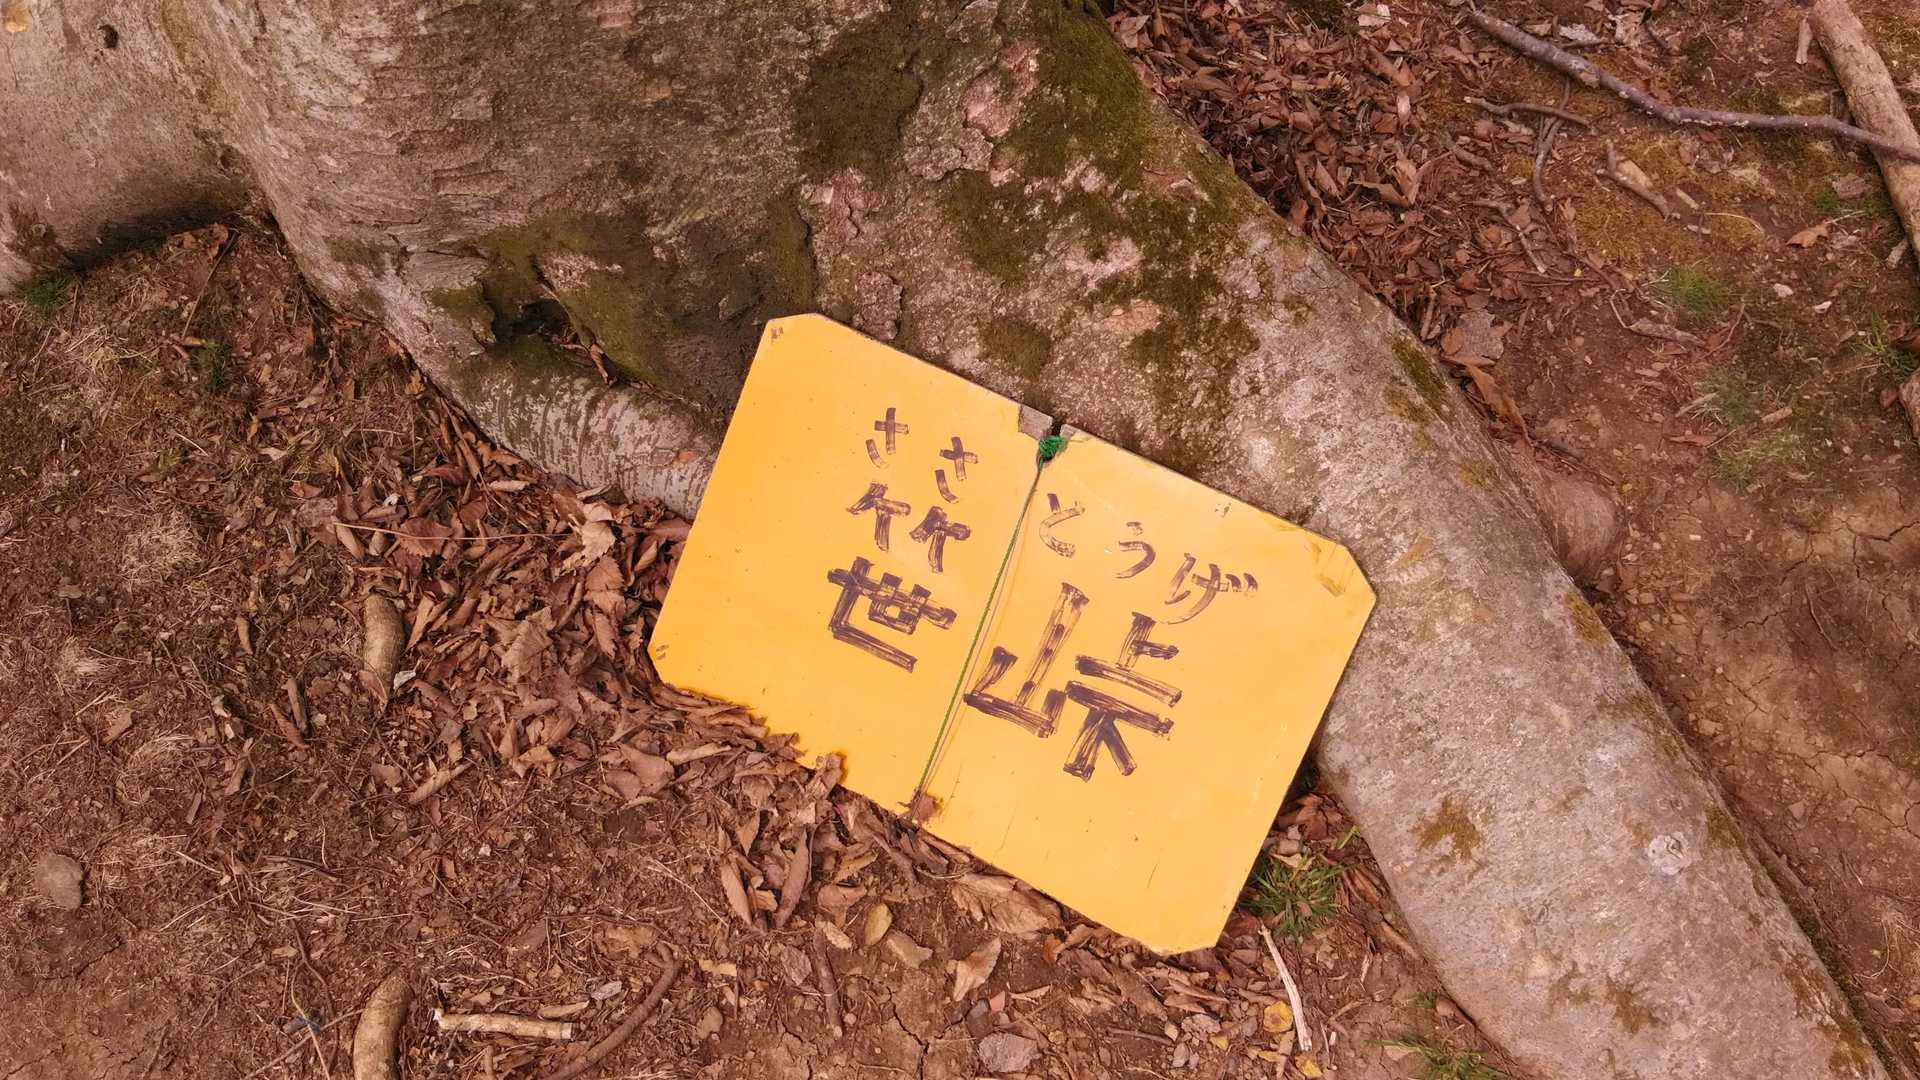 ささ とうげ
笹峠